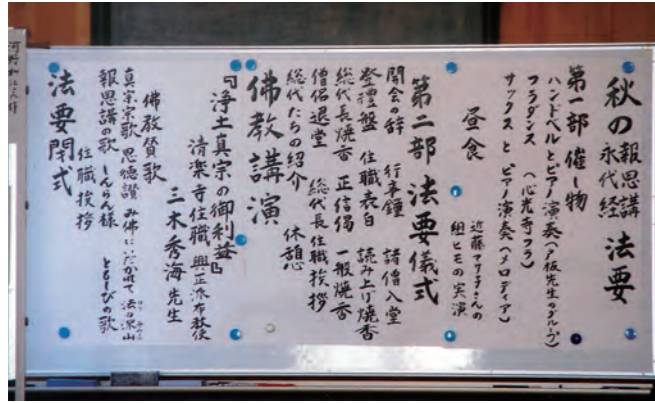 秋の報恩講 永代経 法要
第一部 催し物
ハンドベルとピアノ演奏(戸板先生のグループ)
フラダンス (心光寺フラ)
サックスとピアノ演奏(メロディア)
昼食 近藤マサ子さんの
組ヒモの実演
第二部 法要儀式
開会の辞 行事鐘 諸僧入堂
登禮盤 住職表白 読み上げ焼香
総代長焼香 正信偈 一般焼香
僧侶退堂 総代長住職挨拶
総代たちの紹介 休憩
佛教講演
『浄土真宗の御利益』
清楽寺住職 興正派布教使
三木秀海先生
佛教賛歌
真宗宗歌 恩徳讃 み佛にいだかれて 法の深山
報恩講の歌 しんらん様 ともしびの歌
住職挨拶
法要閉式